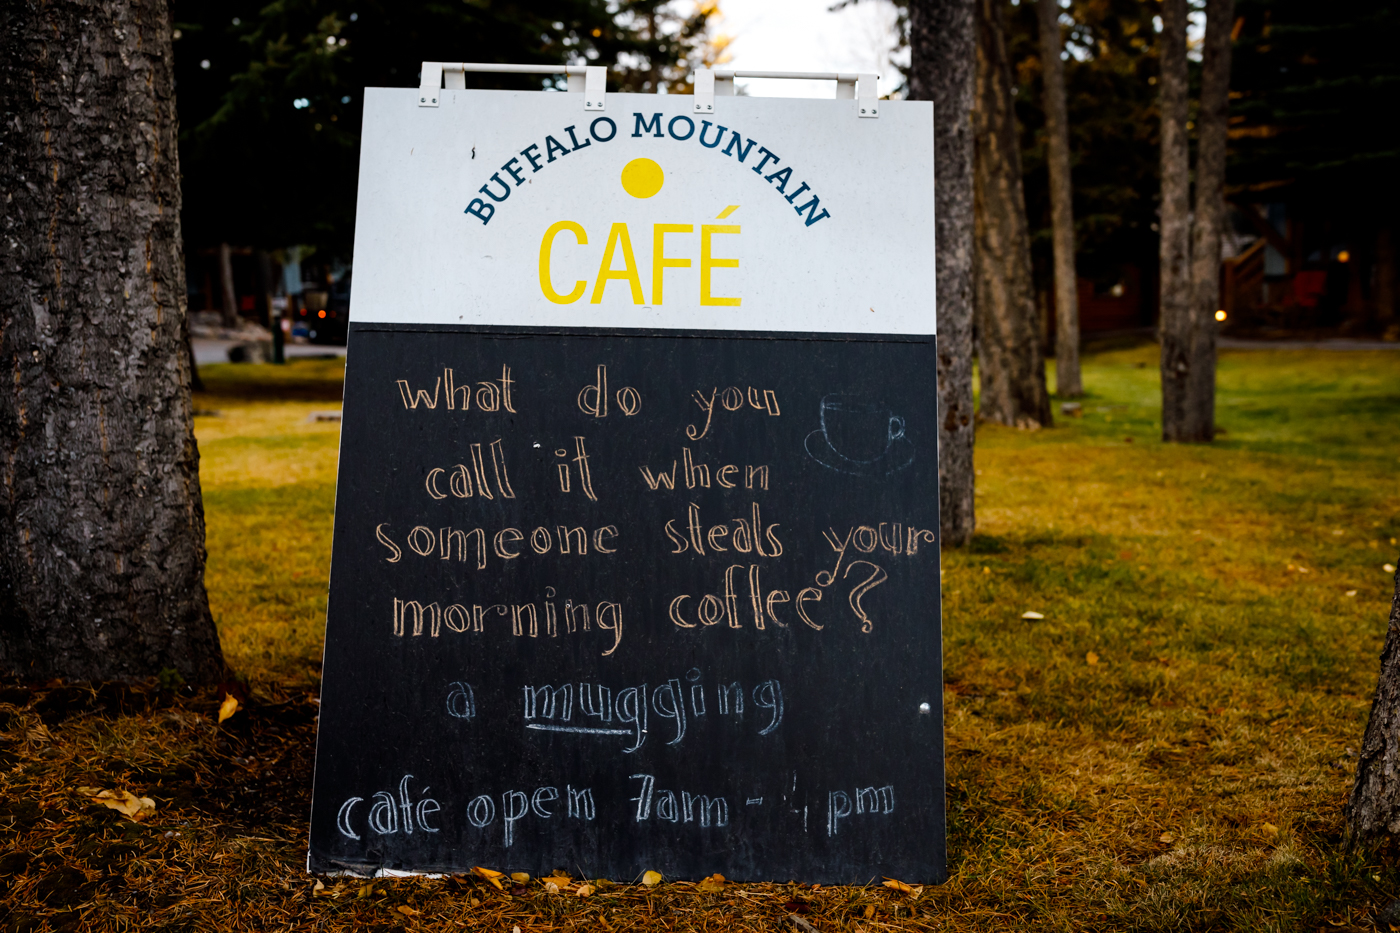 BUFFALO MOUNTAIN
CAFÉ
what do you
call it when
someone steals your
morning coffee?
a mugging
café open 7am - pm